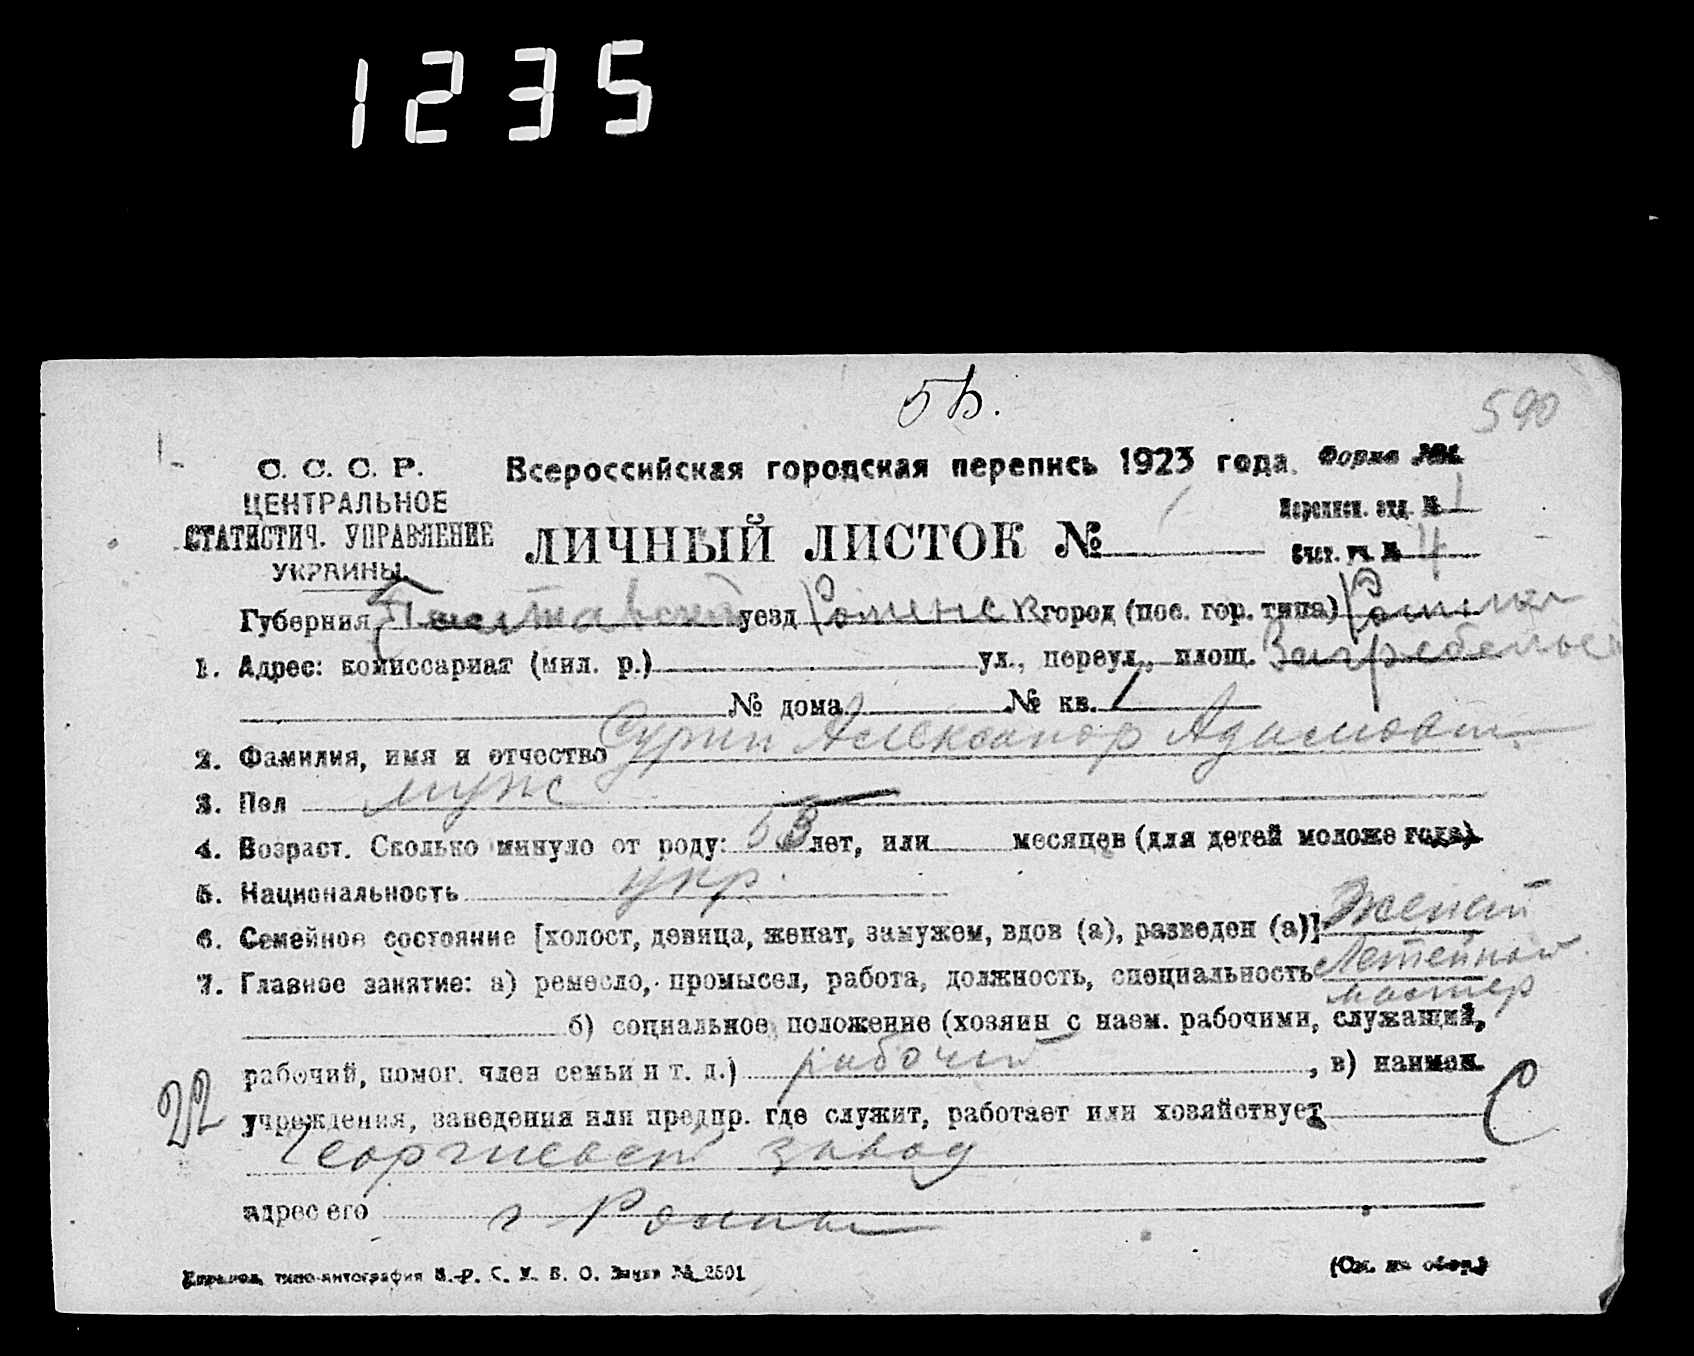 1235
5Б.
590
С. С. С. Р.
ЦЕНТРАЛЬНОЕ
СТАТИСТИЧ. УПРАВЛЕНИЕ
УКРАИНЫ.
Всероссийская городская перепись 1923 года.
Форма №1.
ЛИЧНЫЙ ЛИСТОК № 1
Переписн. отд. № 1
Счет. уч. № 4
Губерния Полтавской уезд Роменск город (пос. гор. типа) Ромны
1. Адрес: комиссариат (мил. р.) ул., переул., площ. Загребелье
№ дома № кв. 1
2. Фамилия, имя и отчество Сурин Александр Адамович
3. Пол муж
4. Возраст. Сколько минуло от роду: 53 лет, или месяцев (для детей моложе года)
5. Национальность укр.
6. Семейное состояние [холост, девица, женат, замужем, вдов (а), разведен (а)] Женат
7. Главное занятие: а) ремесло, промысел, работа, должность, специальность Летейной
мастер
б) социальное положение (хозяин с наем. рабочими, служащий,
рабочий, помог. член семьи и т. д.) рабочий , в) наимен.
22
учреждения, заведения или предпр. где служит, работает или хозяйствует С
Георгиевский завод
адрес его г Ромны
типо-литография У.-Р. С. У. В. О. Заказ № 2501
(См. на обор.)